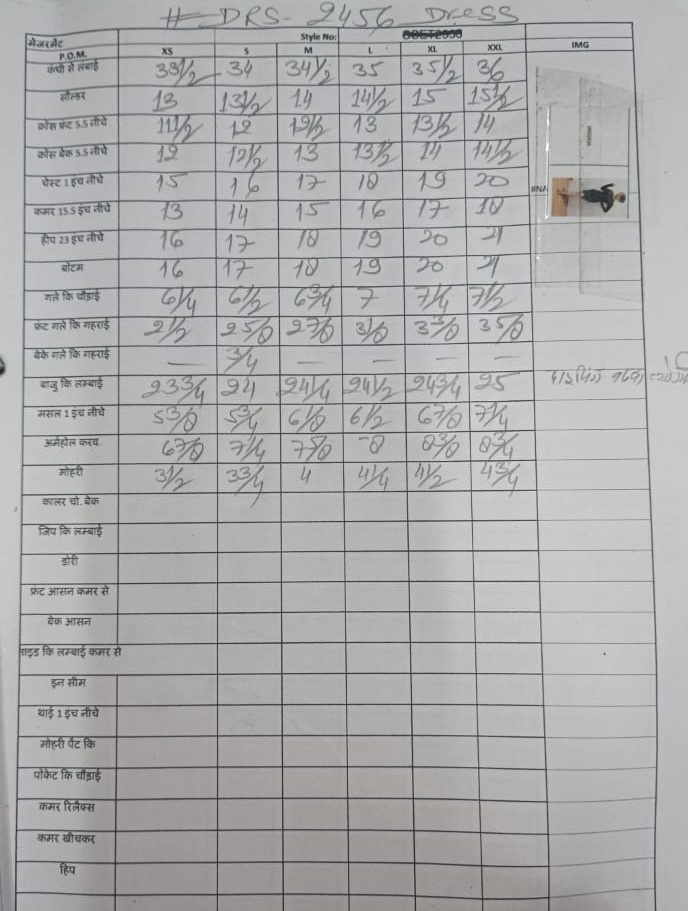 # DRS-2456 Dress
मेजरमेंट Style No:
P.O.M. XS S M L XL XXL IMG
कंधे से लंबाई 33 1/2 34 34 1/2 35 35 1/2 36
सोल्डर 13 13 1/2 14 14 1/2 15 15 1/2
क्रोस फ्रंट 5.5 नीचे 11 1/2 12 12 1/2 13 13 1/2 14
क्रोस बेक 5.5 नीचे 12 12 1/2 13 13 1/2 14 14 1/2
चेस्ट 1 इंच नीचे 15 16 17 18 19 20
कमर 15.5 इंच नीचे 13 14 15 16 17 18
हीप 23 इंच नीचे 16 17 18 19 20 21
बोटम 16 17 18 19 20 21
गले कि चौड़ाई 6 1/4 6 1/2 6 3/4 7 7 1/4 7 1/2
फ्रंट गले कि गहराई 2 1/2 2 5/8 2 7/8 3 1/8 3 3/8 3 5/8
बेके गले कि गहराई — 3/4 — — — —
बाजु कि लम्बाई 23 3/4 24 24 1/4 24 1/2 24 3/4 25
मसल 1 इंच नीचे 5 3/8 5 3/4 6 1/8 6 1/2 6 7/8 7 1/4
अर्महोल करव 6 7/8 7 1/4 7 5/8 8 8 3/8 8 3/4
मोहरी 3 1/2 3 3/4 4 4 1/4 4 1/2 4 3/4
कालर चो. बेक
जिप कि लम्बाई
डोरी
फ्रंट आसन कमर से
बेक आसन
साइड कि लम्बाई कमर से
इन सीम
थाई 1 इंच नीचे
मोहरी पेंट कि
पोकेट कि चौड़ाई
कमर रिलैक्स
कमर खीचकर
हिप